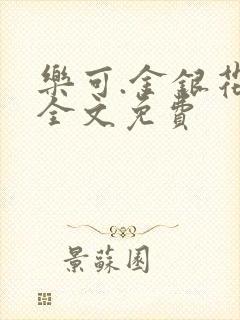 樂可.金銀花
全文免費
景蘇園